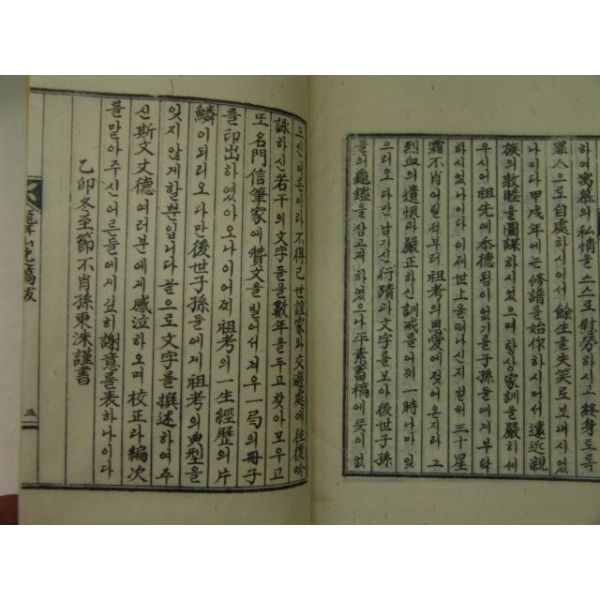 하여 寓慕의 私情을 스스로 慰勞하시고 終身도록
罪人으로 自處하시어서 餘生을 失笑로 보내시었
나이다 甲戌年에는 修譜를 始作하시어서 遠近親
族의 敦睦을 圖謀하시었으며 항상 家訓을 嚴히 세
우시어 祖先에 忝德됨이 없기를 子孫들에게 부탁
하시었나이다 이제 世上을 떠나신지 벌써 三十星
霜 不肖 어릴적부터 祖考의 恩愛에 젖어 온지라 그
烈血의 遺恨과 嚴正하신 訓戒를 어찌 一時나마 잊
으리오 다만 남기신 行蹟과 文字를 모아 後世子孫
들의 龜鑑을 삼고저 하였으나 平素 書稿에 뜻이 없
으신 어른이라 不得已 世誼家와 交遊處에 往復 吟
詠하신 若干의 文字들을 數年을 두고 찾아 모우고
또 名門信筆家에 贊文을 빌어서 겨우 一局의 冊子
를 印出하였아오나 이 어찌 祖考의 一生經歷의 片
鱗이 되리오 다만 後世子孫들에게 祖考의 典型을
잊지 않게 할 뿐입니다 끝으로 文字를 撰述하여 주
신 斯文丈德 여러분에게 感泣하오며 校正과 編次
를 말아주신 어른들에게 깊히 謝意를 表하나이다
乙卯冬至節 不肖孫 東洙 謹書
五